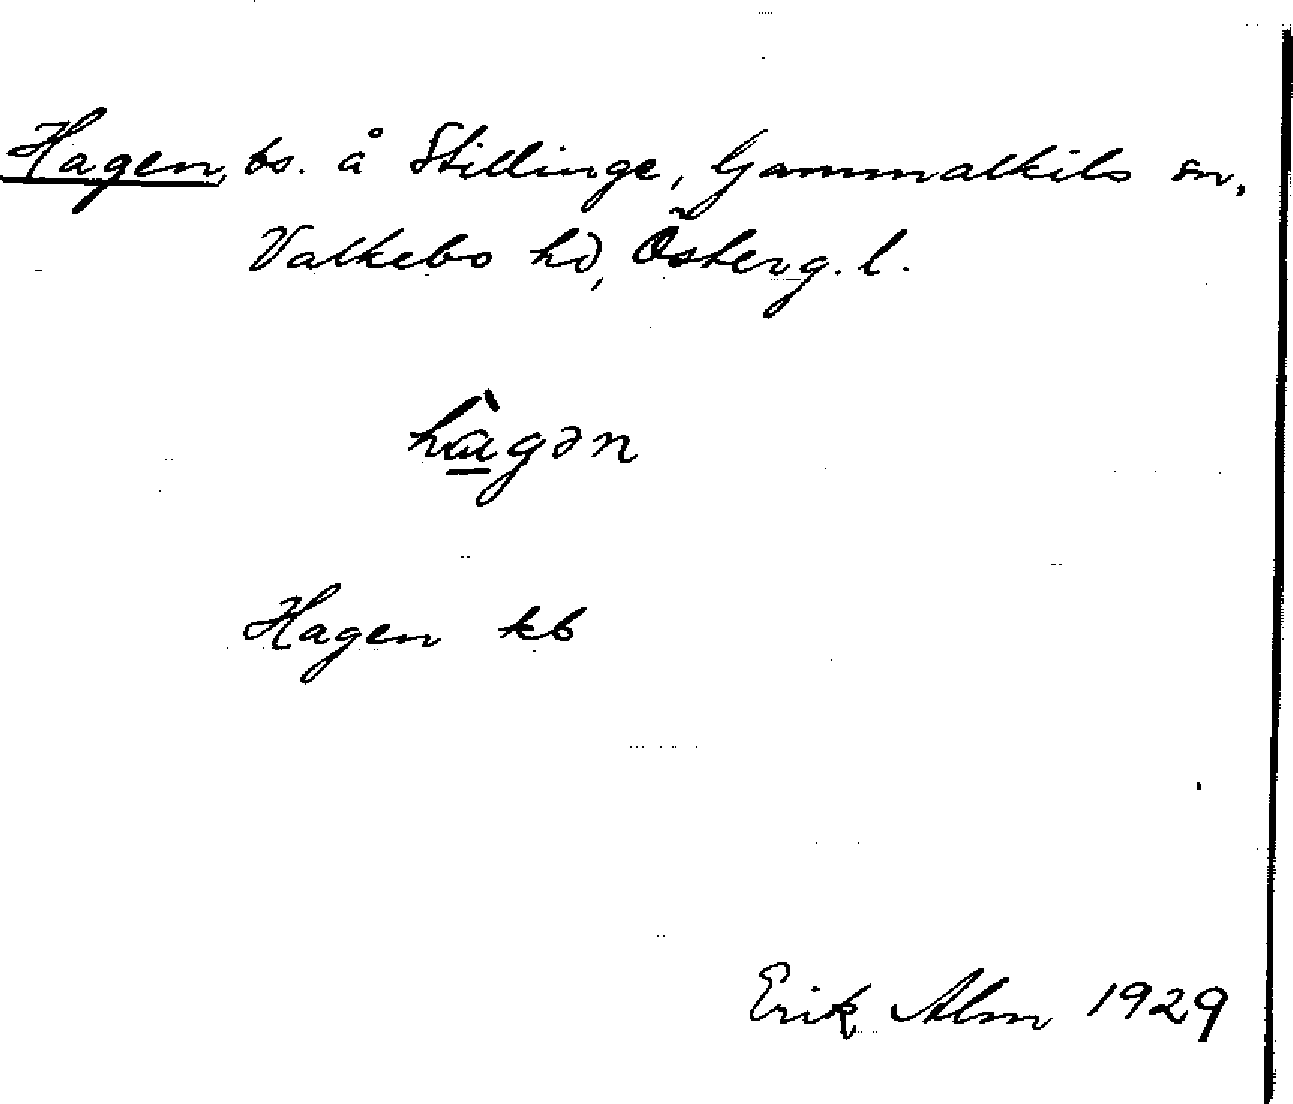 Hagen, bs. å Stillinge, Gammalkils sn,
Valkebo hd, Österg. l.
hàgən
Hagen kb
Erik Alm 1929